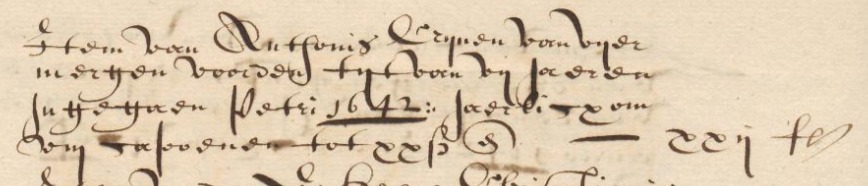 Item van Anthonis Crynen van vyer
mergen voor den tyt van vij jaeren
Ingegaen Petri 1642: jaerlicx om
capoenen tot xx ß — xxij